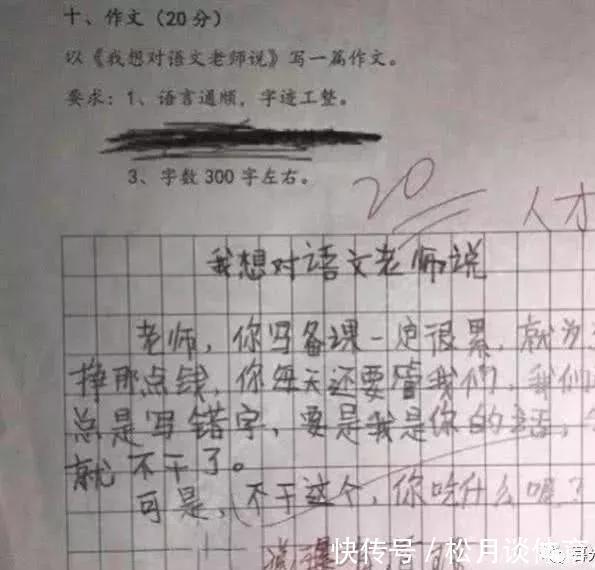 十、作文(20分)
以《我想对语文老师说》写一篇作文。
要求:1、语言通顺,字迹工整。
3、字数300字左右。
20
人才
我想对语文老师说
老师,你写备课一定很累,就为
挣那点钱,你每天还要管我们,我们
总是写错字,要是我是你的话,
就不干了。
可是,不干这个,你吃什么喔?
快传号/松月谈体育